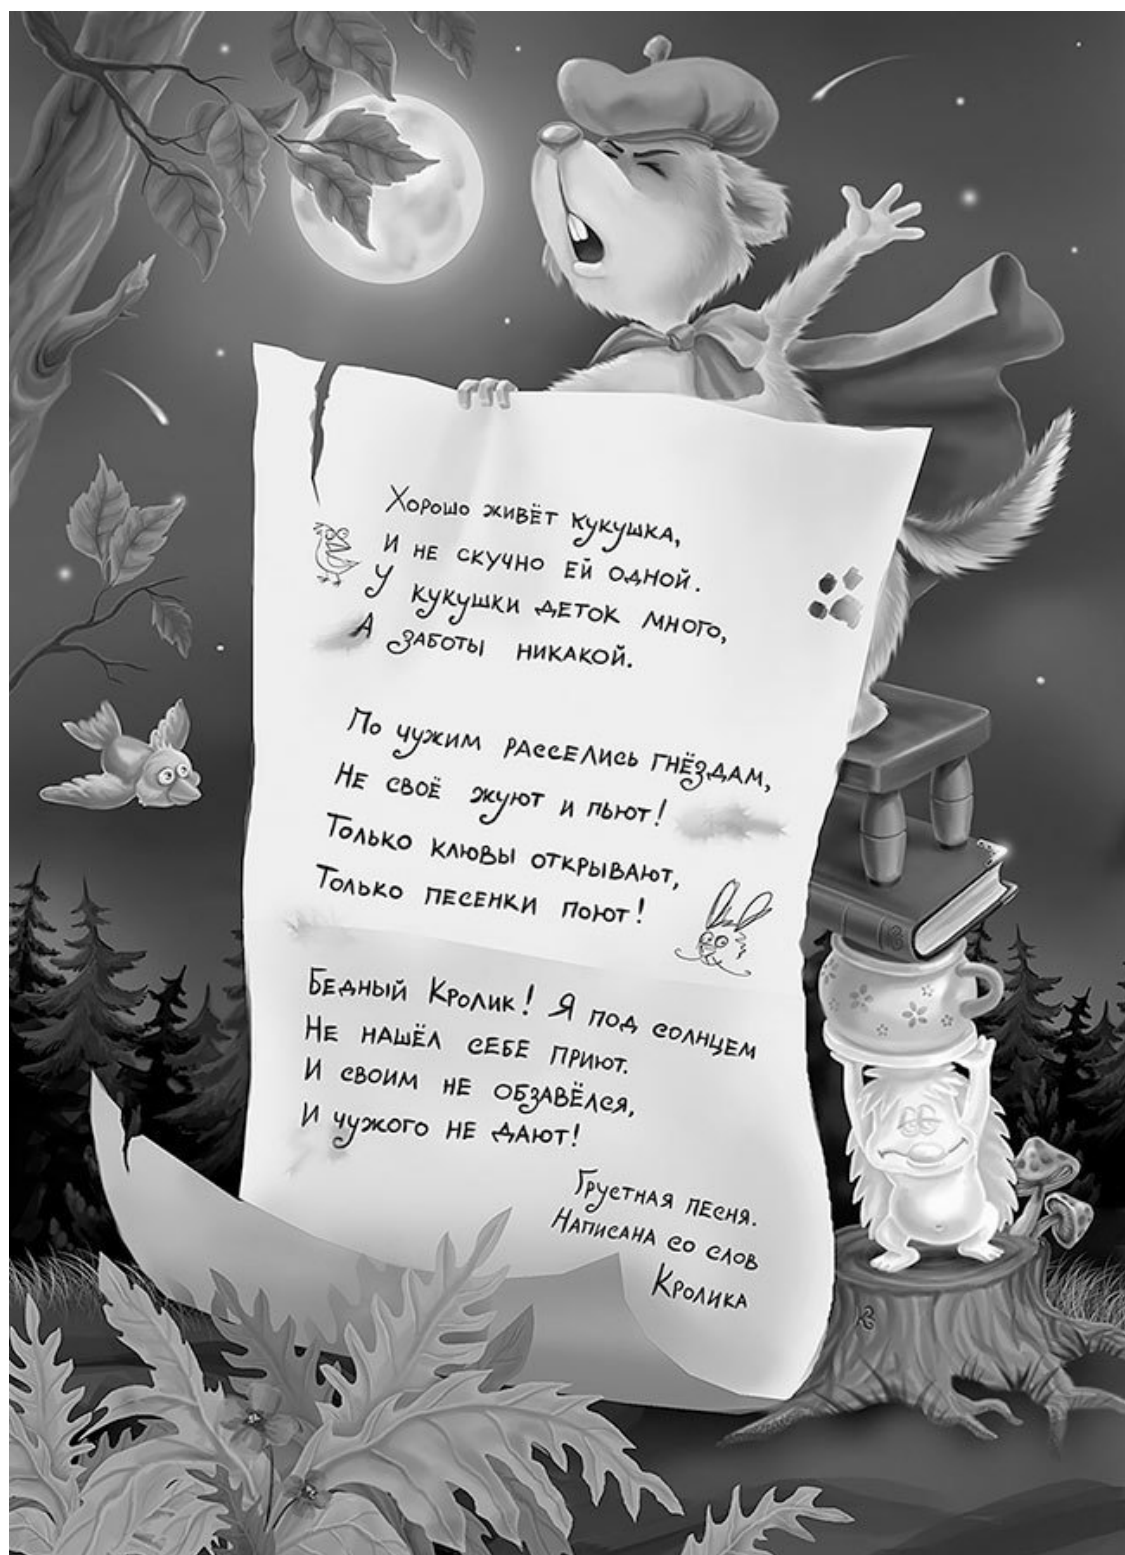 Хорошо живёт кукушка,
И не скучно ей одной.
У кукушки деток много,
А заботы никакой.
По чужим расселись гнёздам,
Не своё жуют и пьют!
Только клювы открывают,
Только песенки поют!
Бедный Кролик! Я под солнцем
Не нашёл себе приют.
И своим не обзавёлся,
И чужого не дают!
Грустная песня.
Написана со слов
Кролика